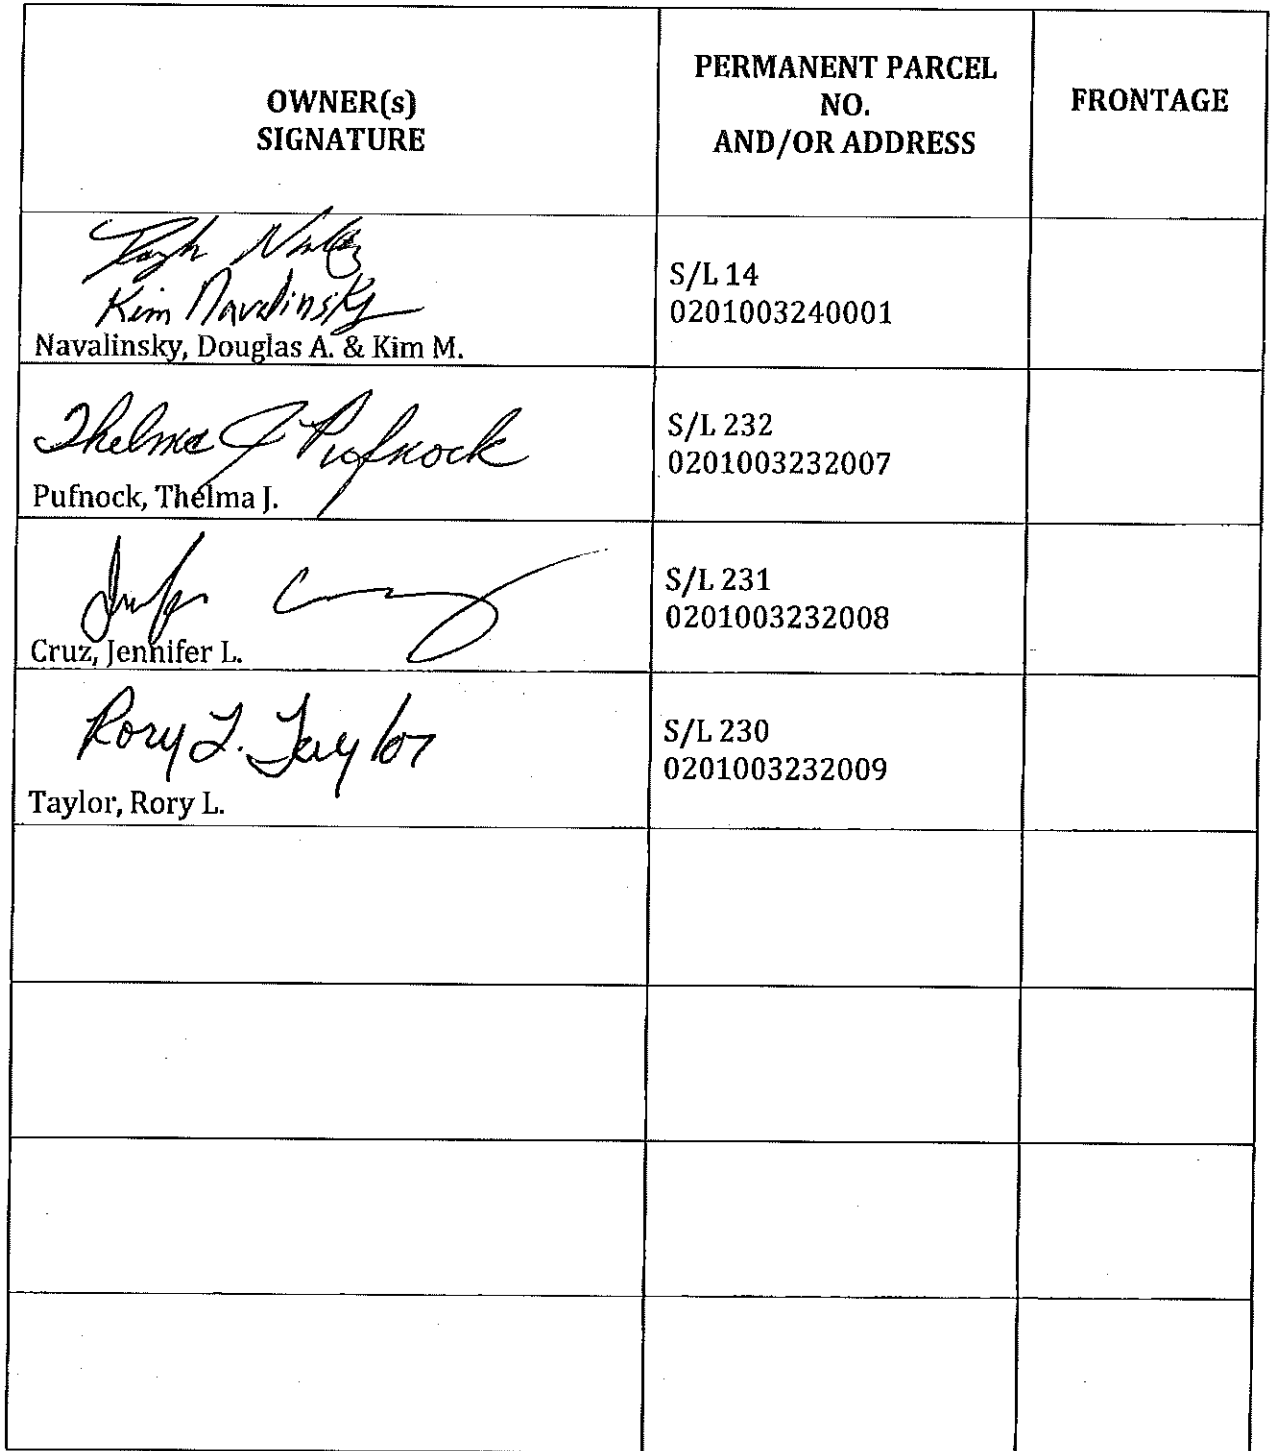 OWNER(s)
SIGNATURE
PERMANENT PARCEL
NO.
AND/OR ADDRESS
FRONTAGE
Kim Navalinsky
Navalinsky, Douglas A. & Kim M.
S/L 14
0201003240001
Thelma J. Pufnock
Pufnock, Thelma J.
S/L 232
0201003232007
Cruz, Jennifer L.
S/L 231
0201003232008
Rory L. Taylor
Taylor, Rory L.
S/L 230
0201003232009